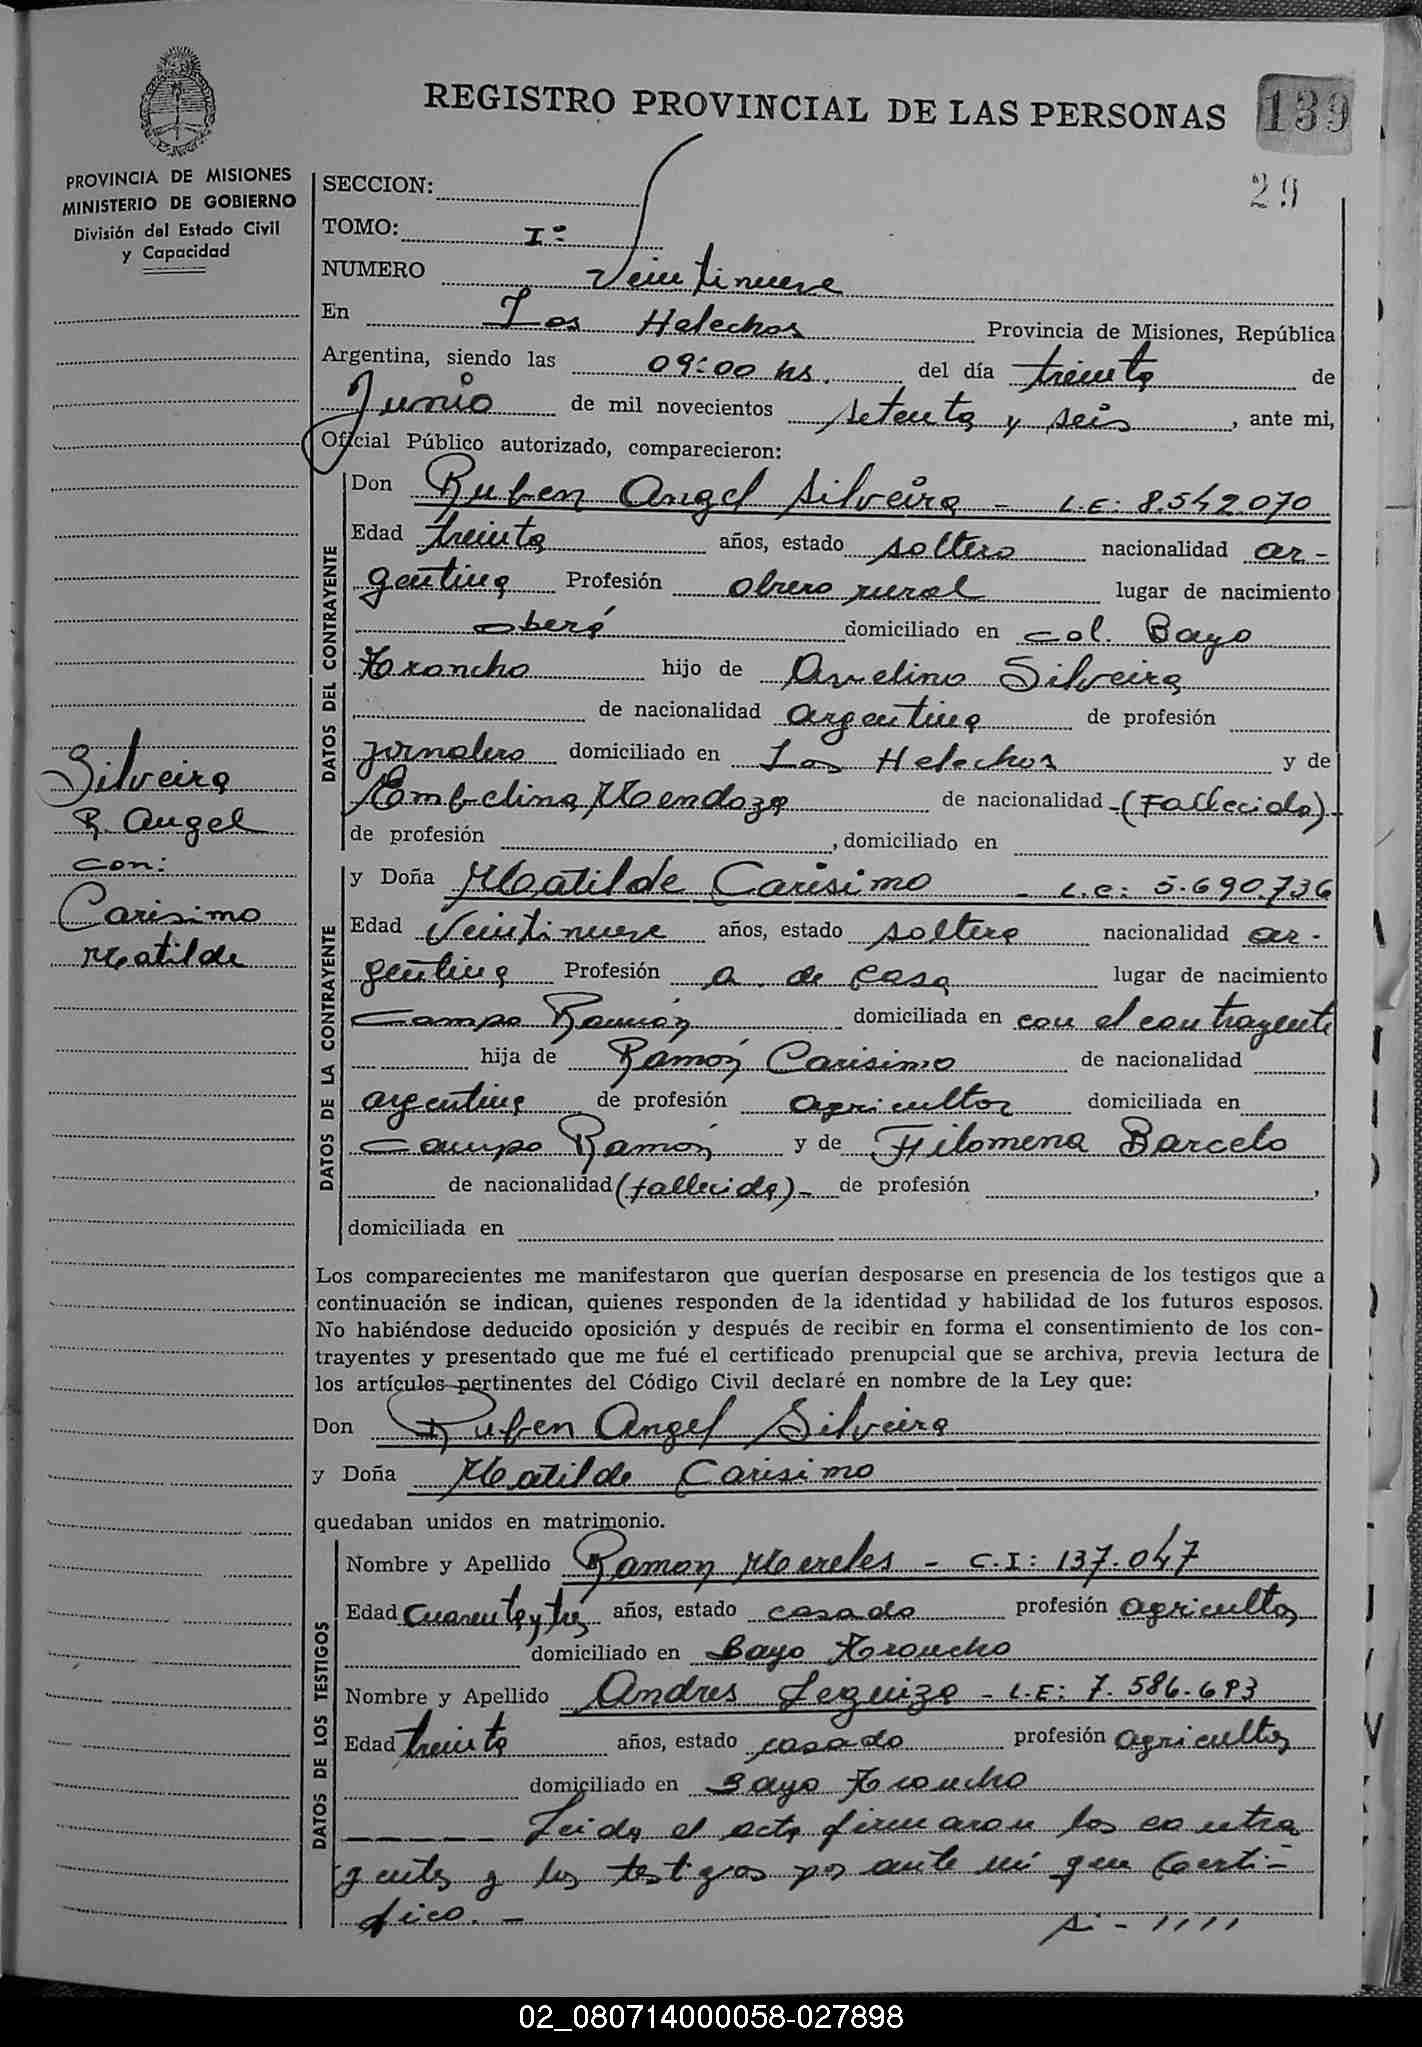 REGISTRO PROVINCIAL DE LAS PERSONAS 139
29
PROVINCIA DE MISIONES
MINISTERIO DE GOBIERNO
División del Estado Civil
y Capacidad
SECCION:
TOMO: Iº
NUMERO Veintinueve
En Los Helechos Provincia de Misiones, República
Argentina, siendo las 09:00 hs. del día treinta de
Junio de mil novecientos setenta y seis, ante mi,
Oficial Público autorizado, comparecieron:
DATOS DEL CONTRAYENTE
Don Ruben Angel Silveira - L.E: 8.542.070
Edad treinta años, estado soltero nacionalidad ar-
gentina Profesión obrero rural lugar de nacimiento
oberá domiciliado en col. Bayo
Troncho hijo de Avelino Silveira
de nacionalidad argentina de profesión
jornalero domiciliado en Los Helechos y de
Mendoza de nacionalidad -(Fallecida)-
de profesión , domiciliado en
Silveira
R. Angel
con:
Carisimo
Matilde
DATOS DE LA CONTRAYENTE
y Doña Matilde Carisimo - L.C: 5.690.736
Edad Veintinueve años, estado soltera nacionalidad ar-
gentina Profesión a. de casa lugar de nacimiento
Campo Ramón domiciliada en con el contrayente
hija de Ramón Carisimo de nacionalidad
argentina de profesión agricultor domiciliada en
Campo Ramón y de Filomena Barcelo
de nacionalidad (fallecida)- de profesión ,
domiciliada en
Los comparecientes me manifestaron que querían desposarse en presencia de los testigos que a
continuación se indican, quienes responden de la identidad y habilidad de los futuros esposos.
No habiéndose deducido oposición y después de recibir en forma el consentimiento de los con-
trayentes y presentado que me fué el certificado prenupcial que se archiva, previa lectura de
los artículos pertinentes del Código Civil declaré en nombre de la Ley que:
Don Ruben Angel Silveira
y Doña Matilde Carisimo
quedaban unidos en matrimonio.
DATOS DE LOS TESTIGOS
Nombre y Apellido Ramon Mereles - C.I: 137.047
Edad Cuarenta y tres años, estado casado profesión agricultor
domiciliado en Bayo Troncho
Nombre y Apellido Andres Leguiza - L.E: 7.586.693
Edad treinta años, estado casado profesión agricultor
domiciliado en Bayo Troncho
Leida el acta firmaron los contra
yentes y los testigos por ante mi que Certi-
fico. -
02_080714000058-027898